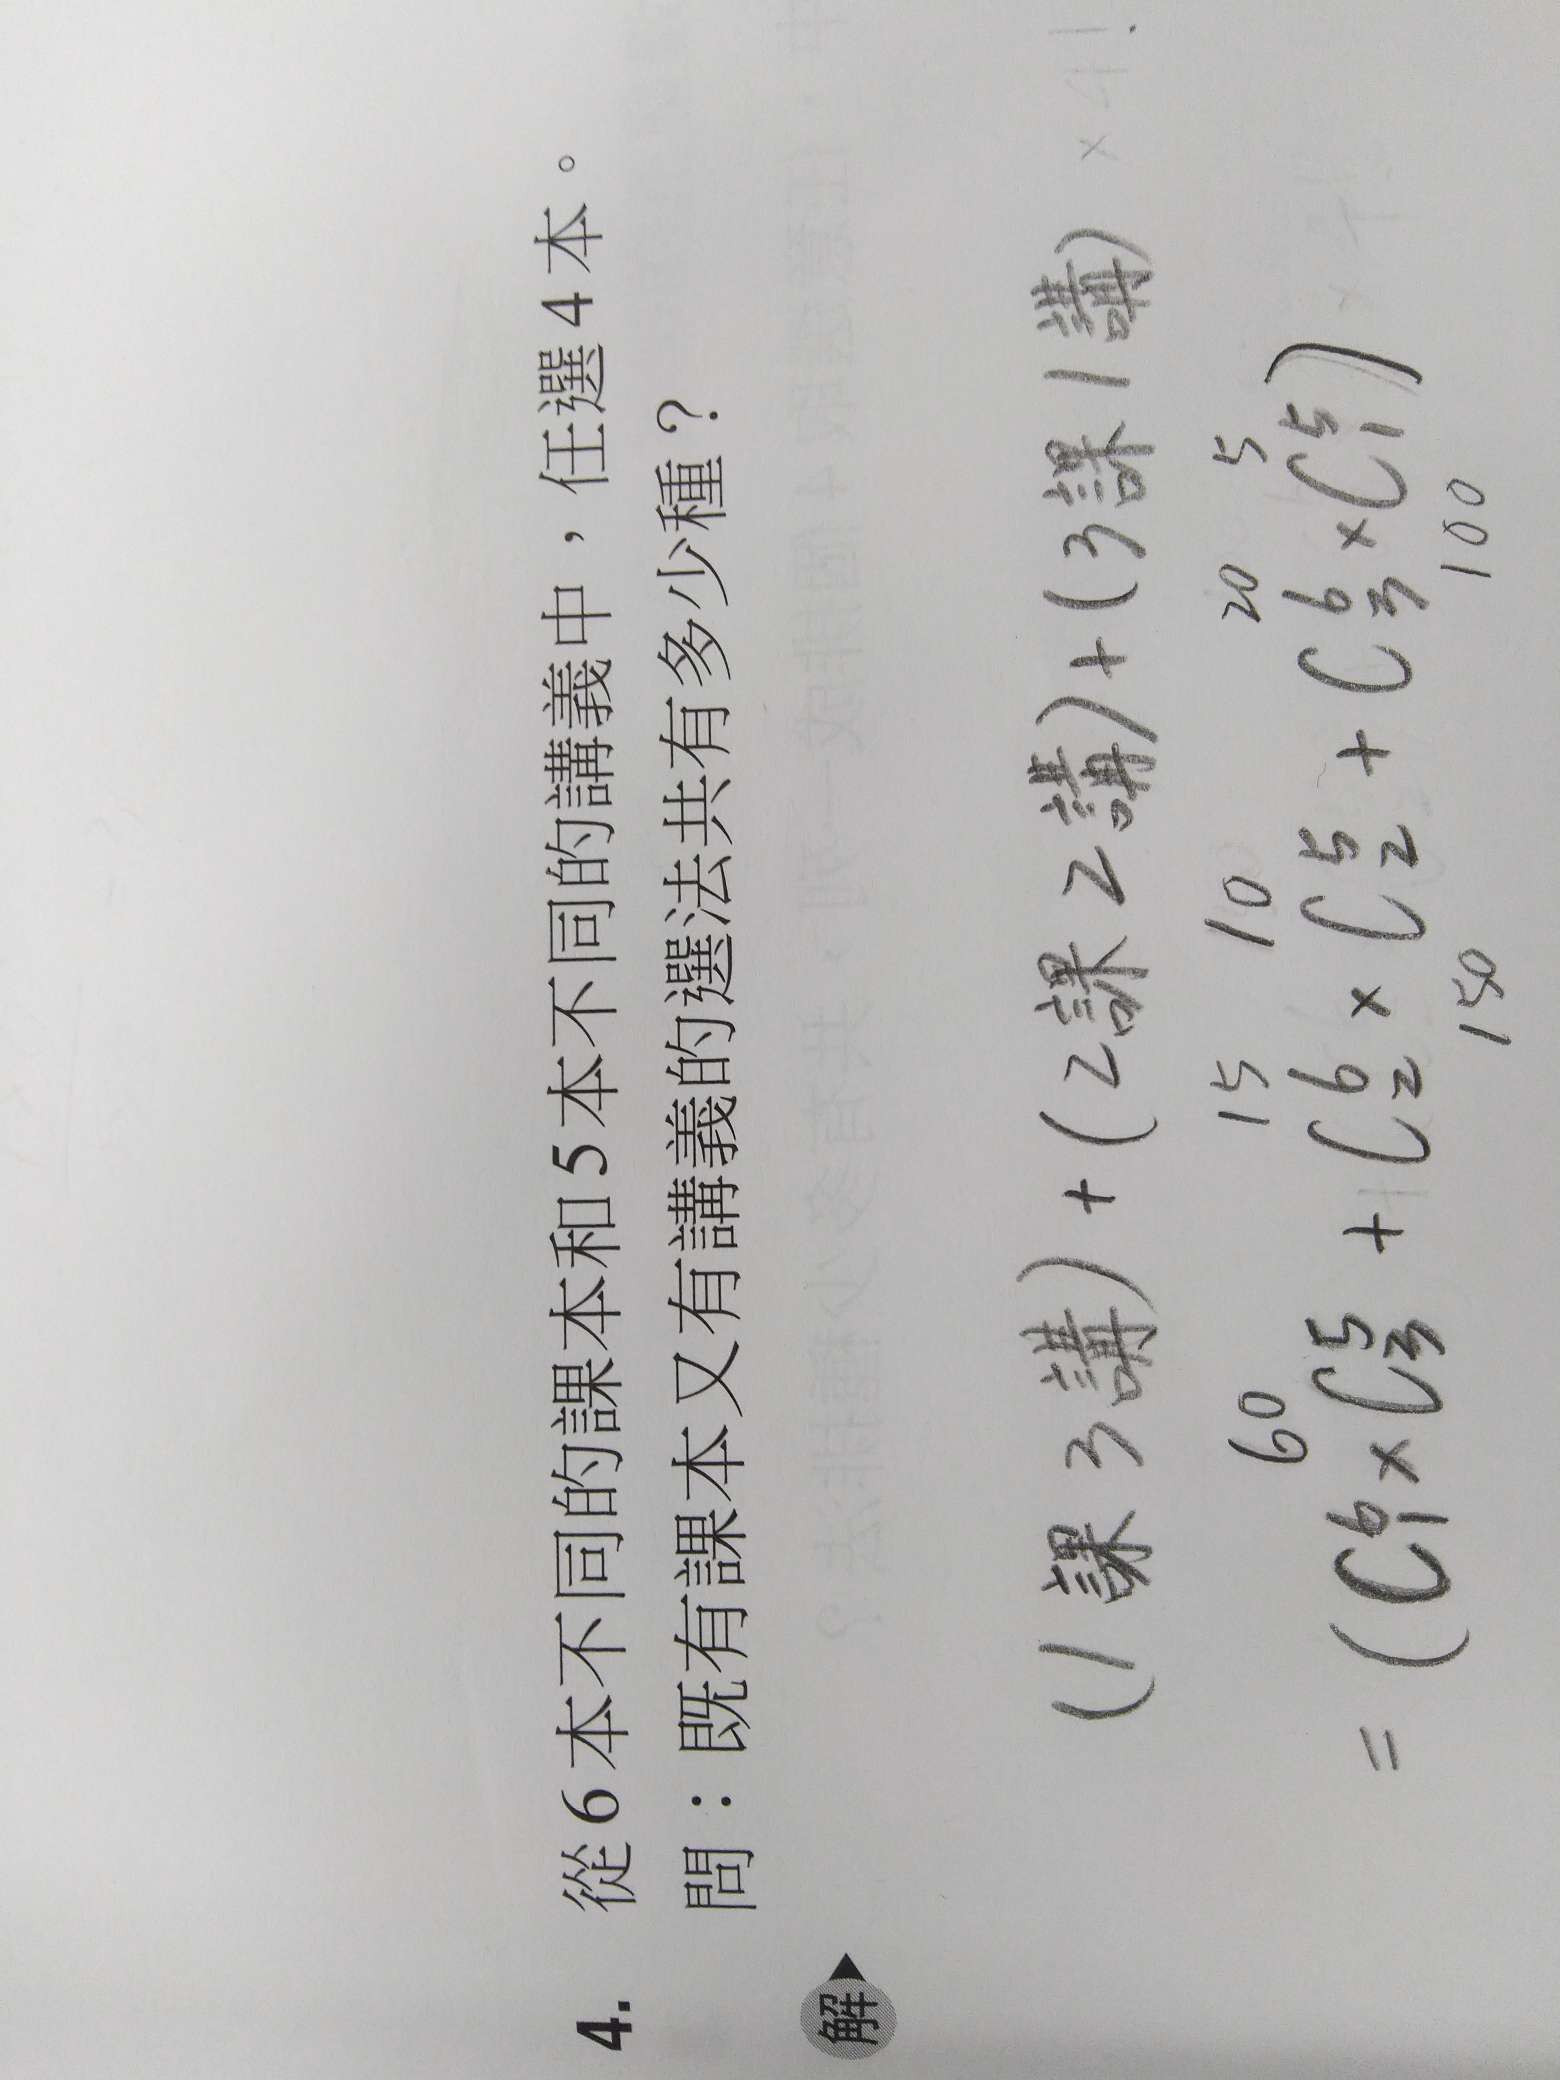 4. 從6本不同的課本和5本不同的講義中，任選4本。
問：既有課本又有講義的選法共有多少種？
解
(1課3講)+(2課2講)+(3課1講) × 4!
60 15 10 20 5
= (C⁶₁×C⁵₃ + C⁶₂×C⁵₂ + C⁶₃×C⁵₁)
150 100